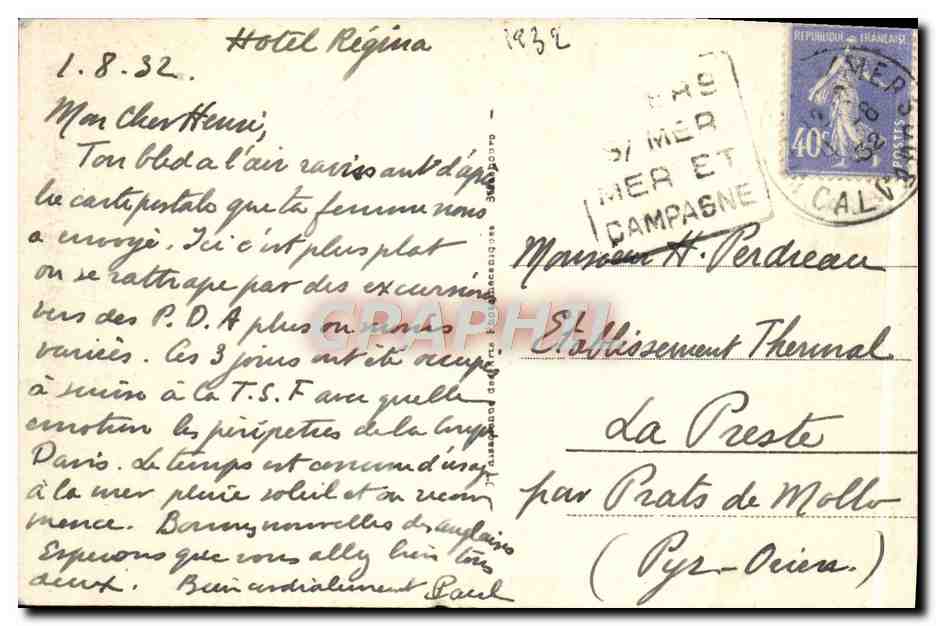 Hotel Régina
1932
1.8.32.
Mon Cher Henri,
Ton bled a l'air ravissant d'après
la carte postale que ta femme nous
a envoyé. Ici c'est plus plat
on se rattrape par des excursions
vers des P.D.A plus ou moins
variés. Ces 3 jours ont été occupés
à suivre à la T.S.F avec quelle
émotion les péripéties de la Coupe
Davis. Le temps est comme d'usage
à la mer pluie soleil et on recom
mence. Bonnes nouvelles des anglaises
Esperons que vous allez bien tous
deux. Bien cordialement Paul
S/ MER
MER ET
CAMPAGNE
REPUBLIQUE FRANÇAISE
40c
POSTES
CALVA
Monsieur H. Perdreau
Etablissement Thermal
La Preste
par Prats de Mollo
(Pyr-Orien.)
GRAPHIL